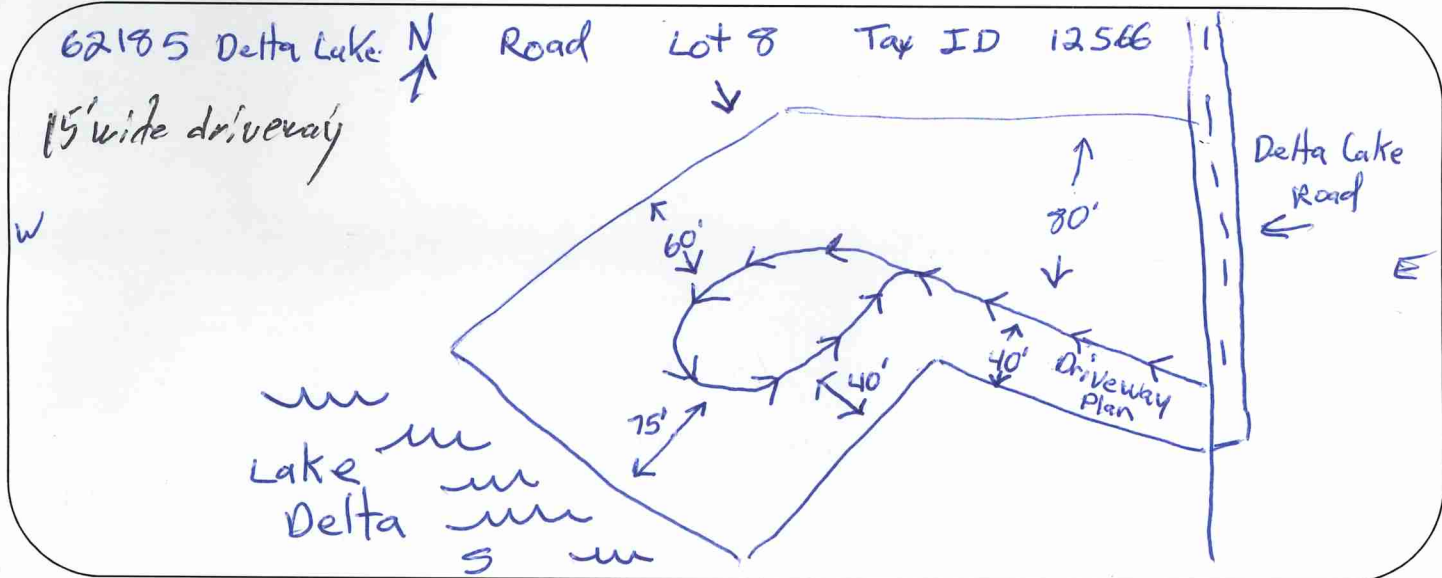 62185 Delta Lake Road Lot 8 Tax ID 12566
N
15' wide driveway
Delta Lake
Road
W
60'
80'
E
40'
Driveway
Plan
40'
75'
Lake
Delta
S